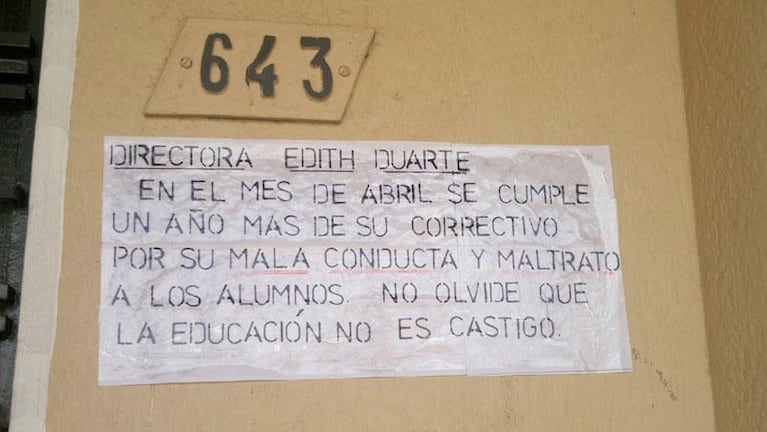 643
DIRECTORA EDITH DUARTE
EN EL MES DE ABRIL SE CUMPLE
UN AÑO MAS DE SU CORRECTIVO
POR SU MALA CONDUCTA Y MALTRATO
A LOS ALUMNOS. NO OLVIDE QUE
LA EDUCACIÓN NO ES CASTIGO.